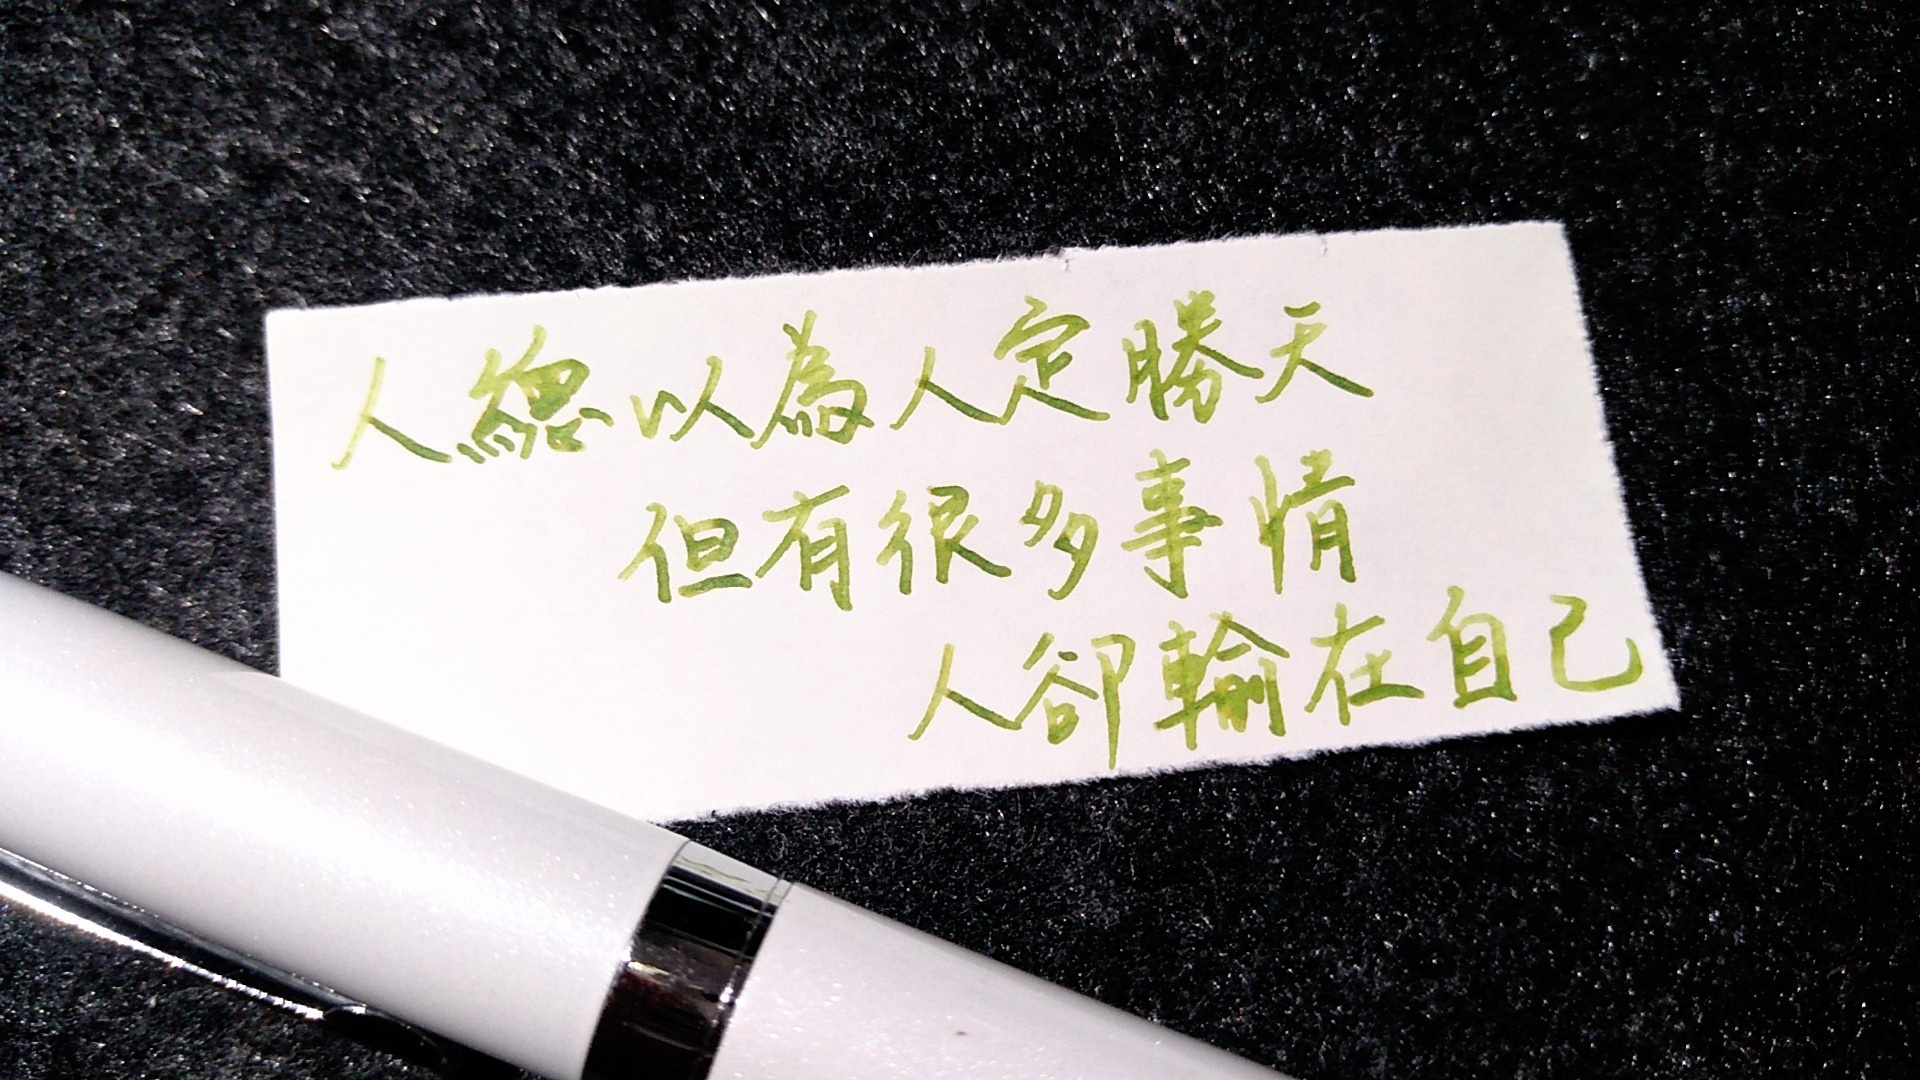 人總以為人定勝天
但有很多事情
人卻輸在自己